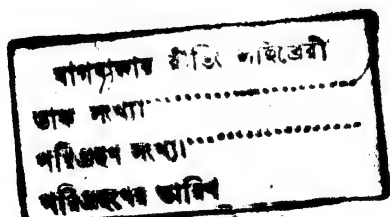 বাগবাজার রীডিং লাইব্রেরী
ডাক সংখ্যা....................
পরিগ্রহণ সংখ্যা....................
পরিগ্রহণের তারিখ